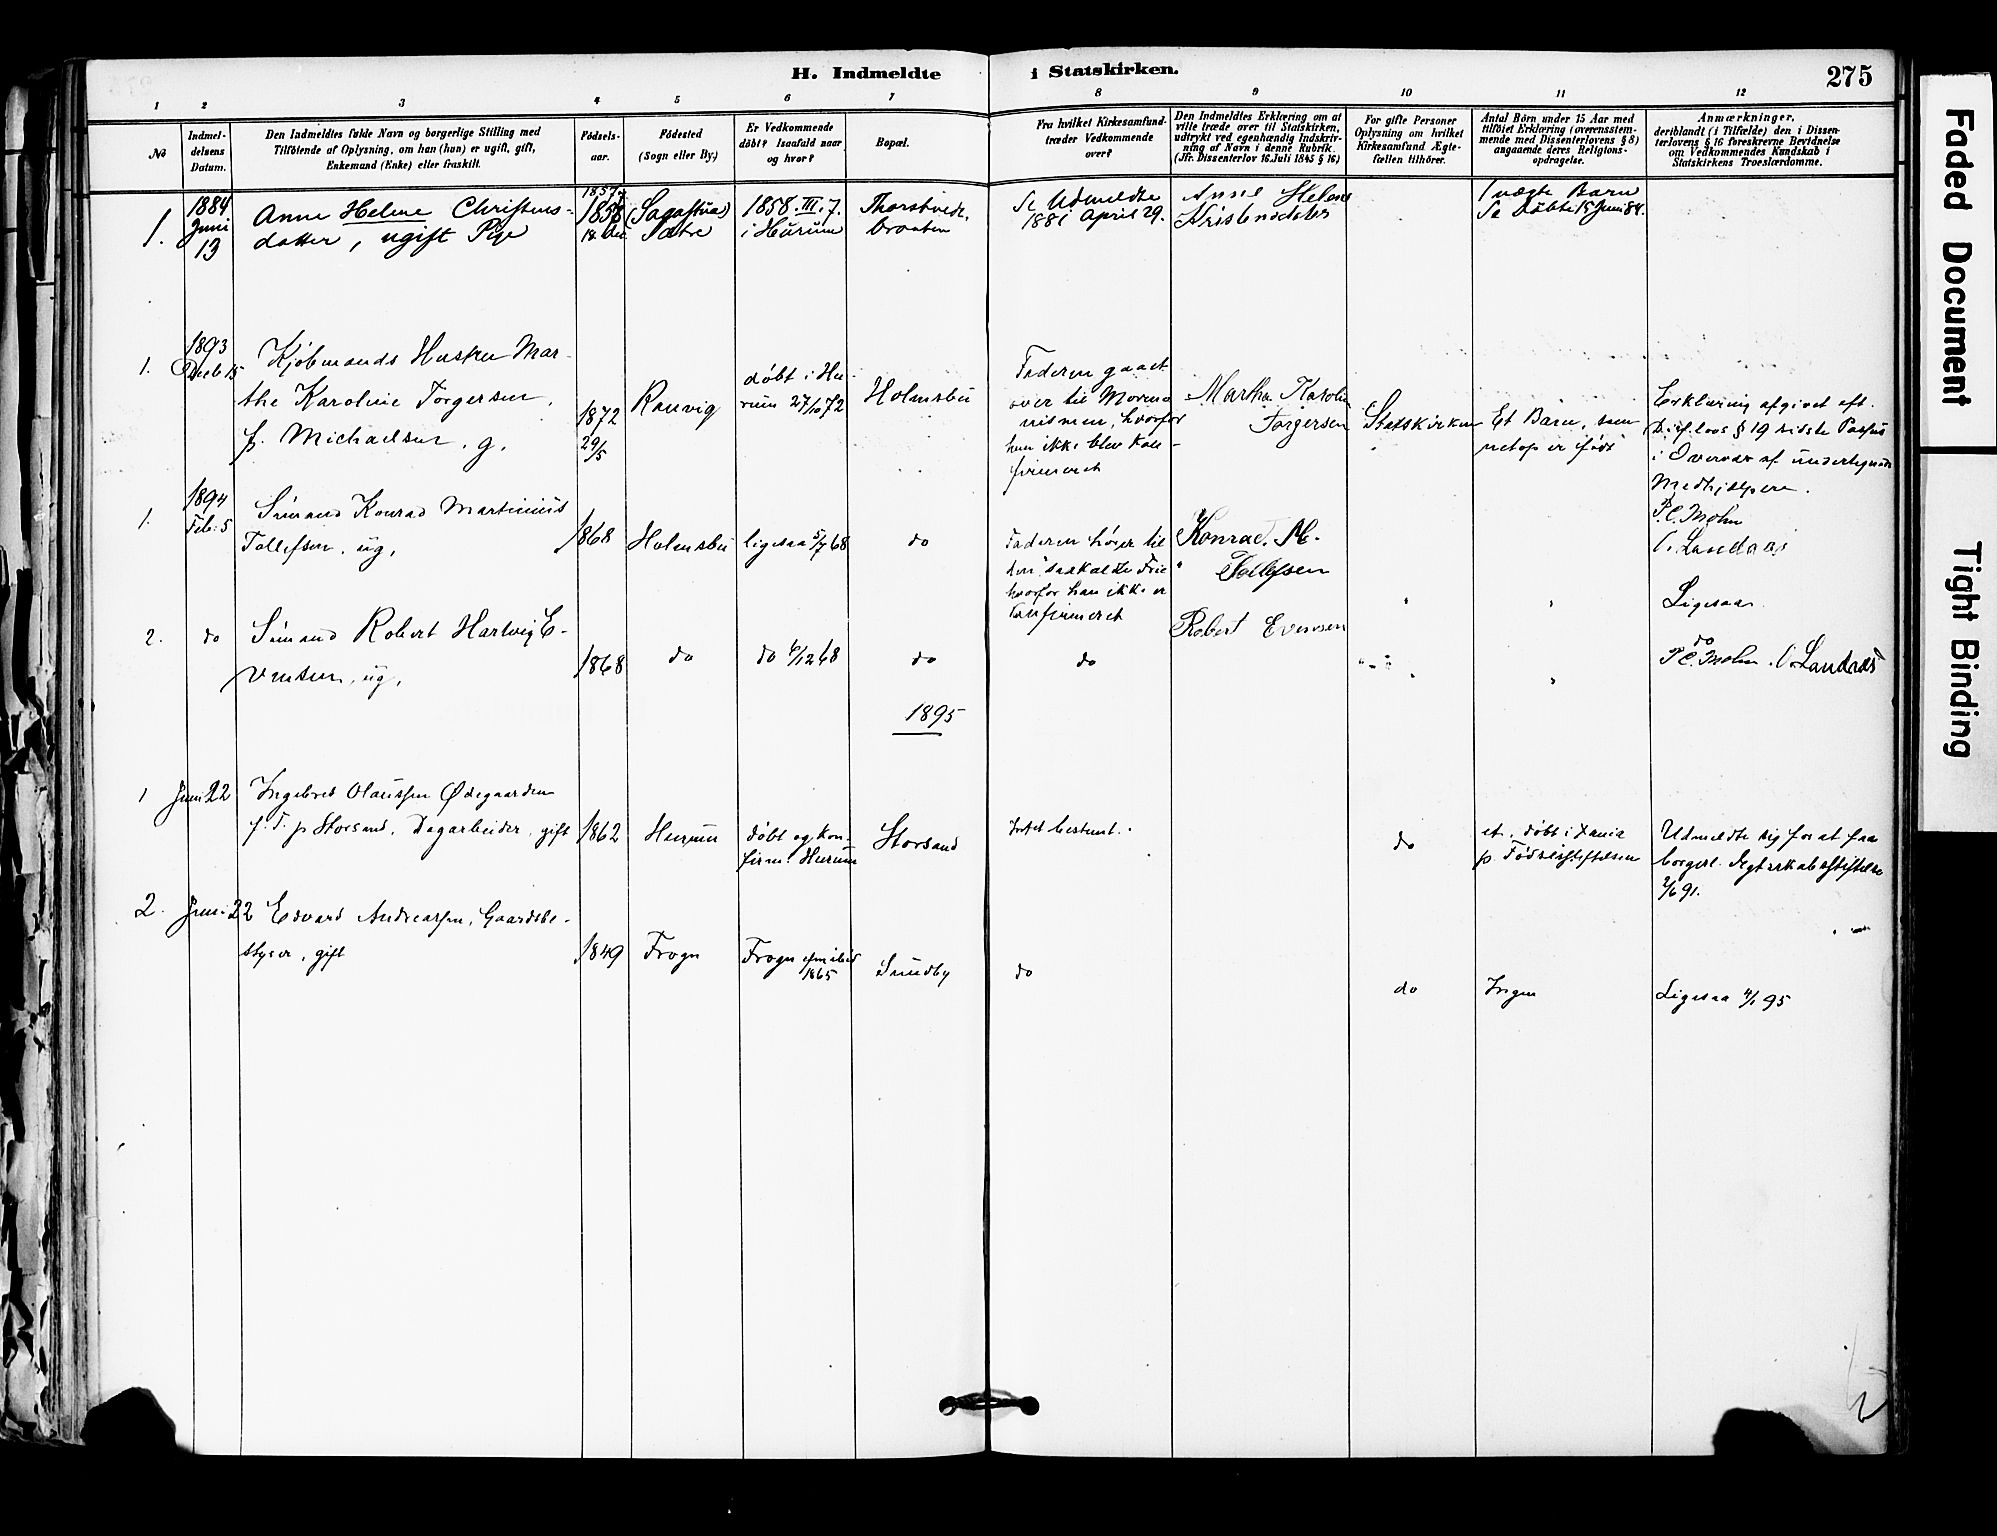 H. Indmeldte i Statskirken.
275
1 2 3 4 5 6 7 8 9 10 11 12
No
Indmel-
delsens
Datum.
Den Indmeldtes fulde Navn og borgerlige Stilling med
Tilföiende af Oplysning, om han (hun) er ugift, gift,
Enkemand (Enke) eller fraskilt.
Födsels-
aar.
Födested
(Sogn eller By.)
Er Vedkommende
döbt? Isaafald naar
og hvor?
Bopæl.
Fra hvilket Kirkesamfund
træder Vedkommende
over?
Den Indmeldtes Erklæring om at
ville træde over til Statskirken,
udtrykt ved egenhændig Indskriv-
ning af Navn i denne Rubrik.
(Jfr. Dissenterlov 16. Juli 1845 § 16)
For gifte Personer
Oplysning om hvilket
Kirkesamfund Ægte-
fællen tilhörer.
Antal Börn under 15 Aar med
tilföiet Erklæring (overensstem-
mende med Dissenterlovens § 8)
angaaende deres Religions-
opdragelse.
Anmærkninger,
deriblandt (i Tilfælde) den i Dissen-
terlovens § 16 foreskrevne Bevidnelse
om Vedkommendes Kundskab i
Statskirkens Troeslærdomme.
1.
1884
Juni
13
Anne Helene Christens-
datter, ugift Pige
1857
1858
18. Dec
(Sagastua)
Sætre
1858. III. 7.
i Hurum
Thorstvedt,
Se Udmeldte
1881 April 29.
Anne Helene
Kristensdatter
1 uægte Barn
Se Döbte 15 Juni 84.
1.
1893
Decb 15
Kjöbmands Hustru Mar-
the Karoline Torgersen,
f. Michaelsen, g.
1872
29/5
Ranvig
döbt i Hu-
rum 27/10 72
Holmsbu
Faderen gaaet
over til Mormo
nismen, hvorfor
hun ikke blev kon-
firmeret
Martha Karolin
Torgersen
Statskirken
Et Barn, som
netop er född
Erklæring afgivet eft.
Diss.lovs § 19 sidste Passus
i Overvær af undertegnede
Medhjælpere.
P.C. Mohn
O. Landaas
1.
1894
Feb: 5
Sömand Konrad Martinius
Tollefsen, ug,
1868
Holmsbu
ligesaa 5/7 68
do
Faderen hörer til
den saakaldte Frie
hvorfor han ikke er
konfirmeret
Konrad. M.
Tollefsen
Ligesaa
2.
do
Sömand Robert Hartvig E-
vensen, ug,
1868
do
do 6/12 68
do
do
Robert Evensen
do
P.C. Mohn. O. Landaas
1895
1
Juni 22
Ingebret Olaussen Ödegaarden
f. T. p Storsand, Dagarbeider, gift
1862
Hurum
döbt og kon-
firm. Hurum
Storsand
Intet bestemt.
do
et, döbt i Xania
p. Födselsstiftelsen
Udmeldte sig for at faa
borgerl. Ægteskabsstiftelse
2/6 91.
2.
Juni 22
Edvard Andreassen, Gaardsbe-
styrer, gift
1849
Frogn
Frogn
1865
Sundby
do
do
Ingen
Ligesaa 4/1 95
Faded Document
Tight Binding